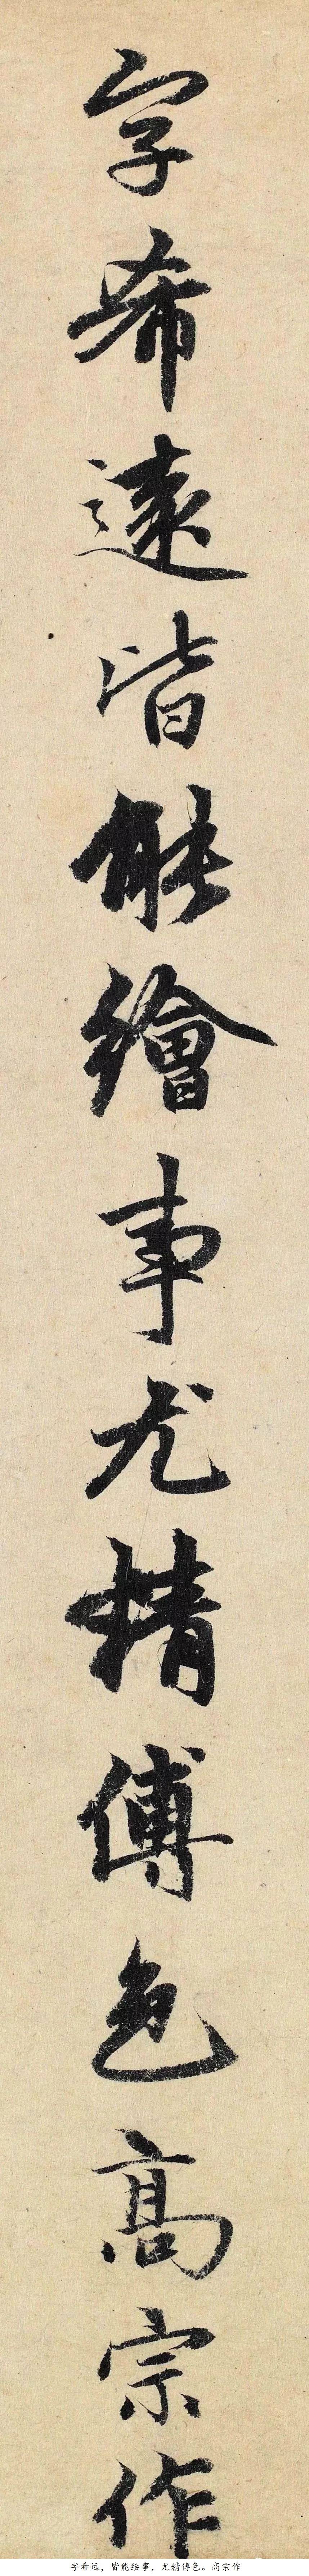 字希遠皆能繪事尤精傅色高宗作
字希远，皆能绘事，尤精傅色。高宗作